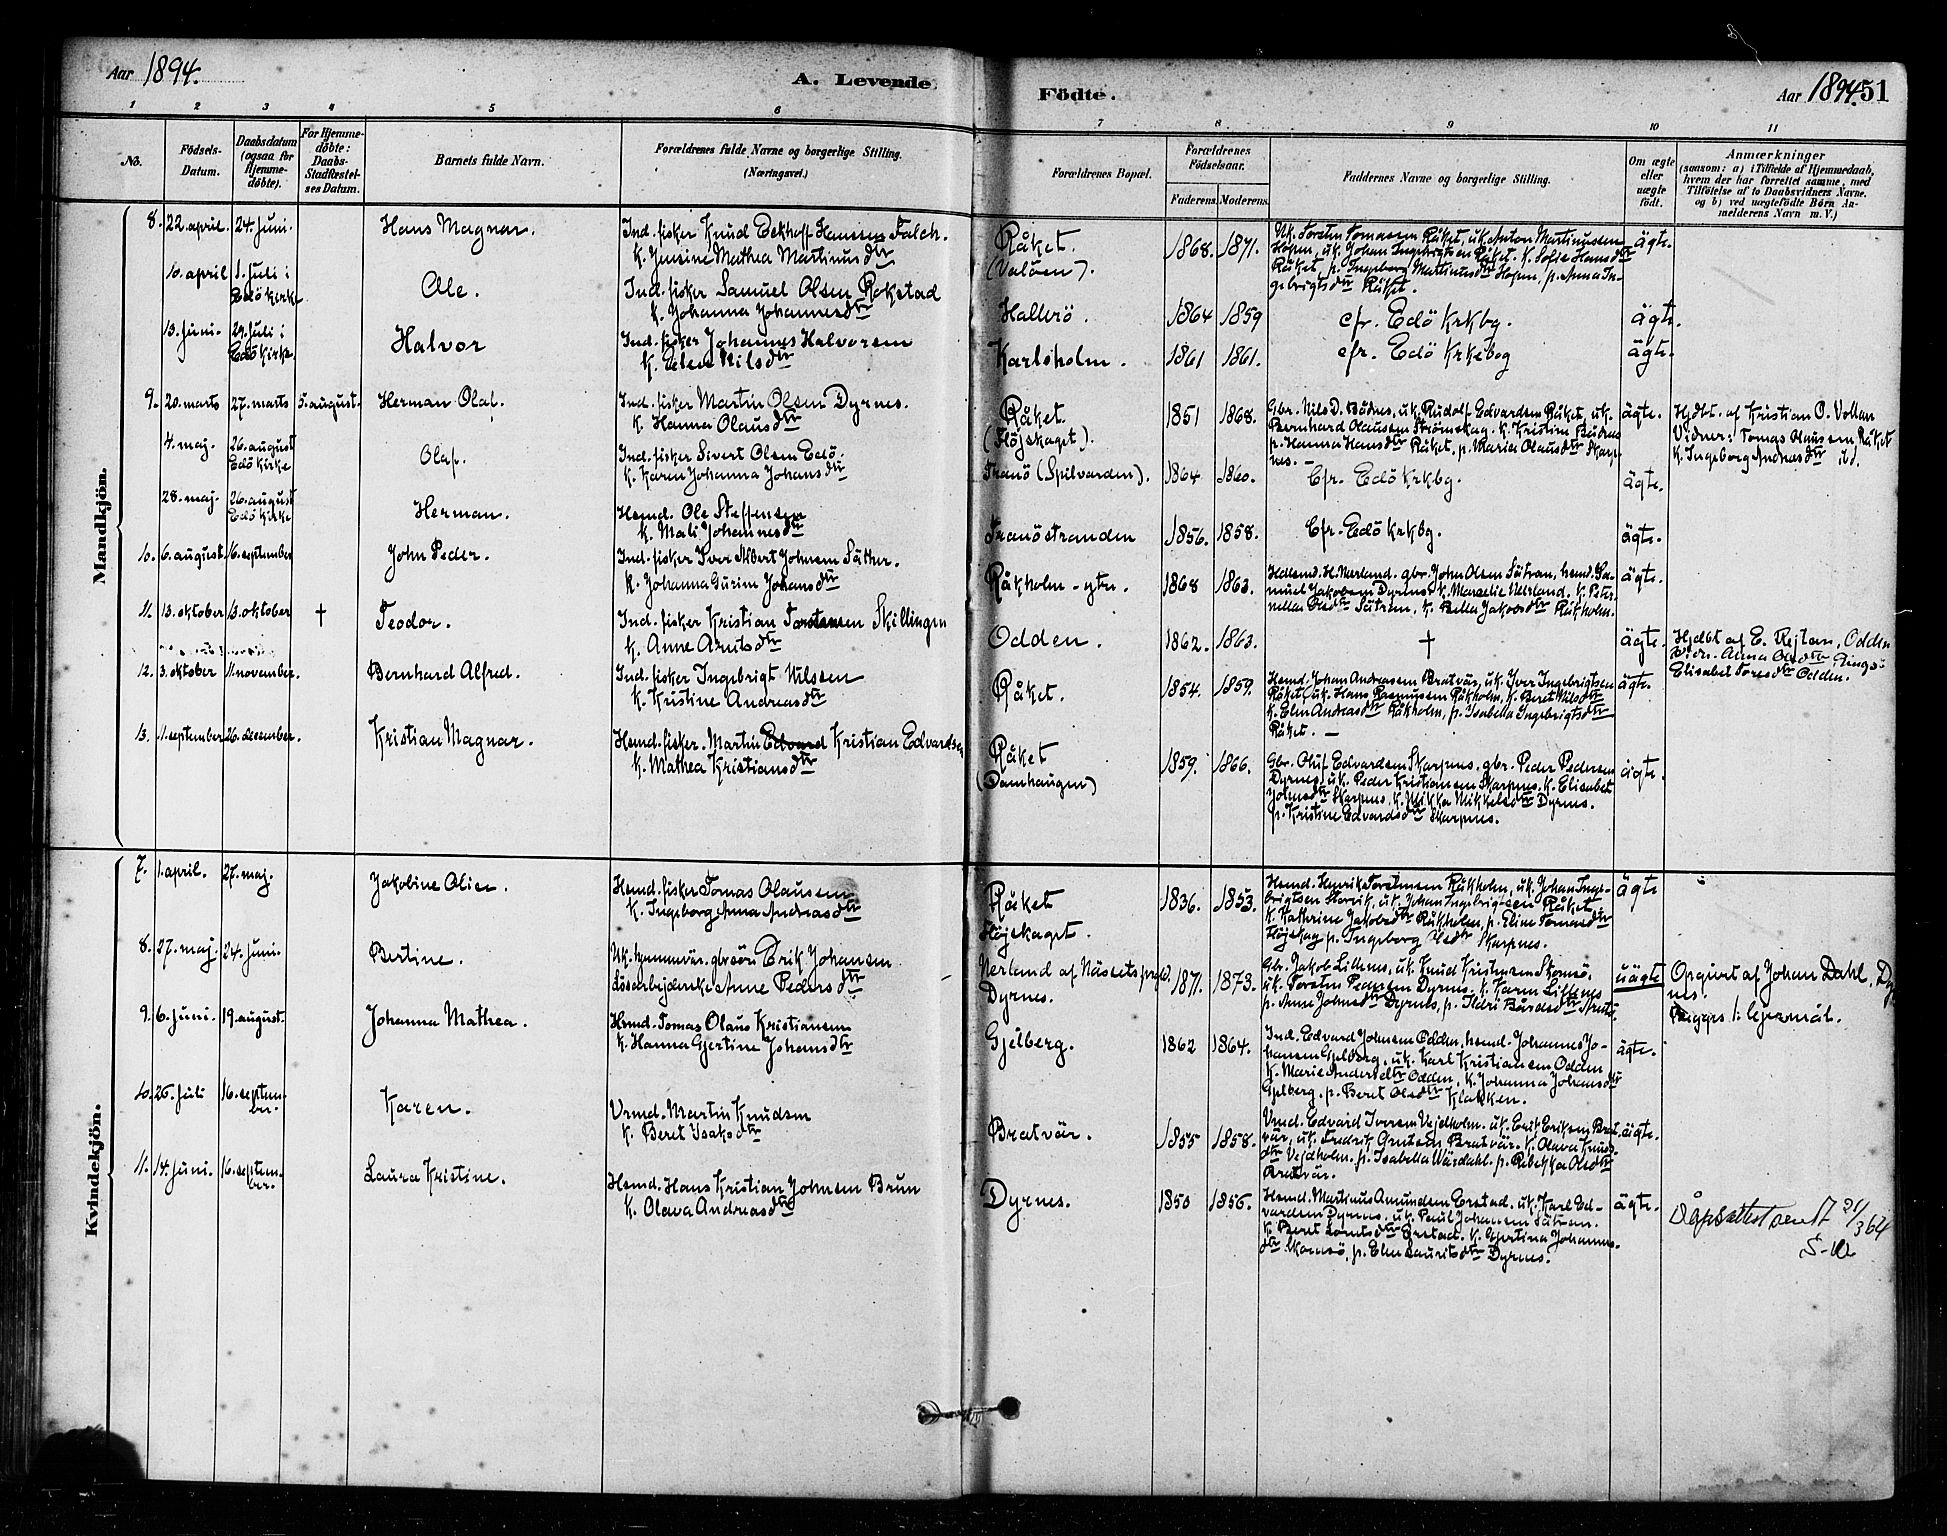 Aar 1894.
A. Levende
Födte.
Aar 1894. 51
1 2 3 4 5 6 7 8 9 10 11
No.
Födsels-Datum.
Daabsdatum (ogsaa for Hjemme-döbte).
For Hjemme-döbte: Daabs-Stadfæstel-ses Datum.
Barnets fulde Navn.
Forældrenes fulde Navne og borgerlige Stilling.
(Næringsvei.)
Forældrenes Bopæl.
Forældrenes Födselsaar.
Faderens. Moderens.
Faddernes Navne og borgerlige Stilling.
Om ægte eller uægte födt.
Anmærkninger
(saasom: a) i Tilfælde af Hjemmedaab,
hvem der har forrettet samme, med
Tilföielse af to Daabsvidners Navne.
og b) ved uægtefödte Börn An-
melderens Navn m. V.)
Mandkjön.
8. 22. april. 24. juni. Hans Magnar. Ind. fisker Knud Eekhoff Hansen Falch.
K. Jensine Mathea Martinusdtr
Råket. (Valöen). 1868. 1871.
Uk. Torsten Tomassen Råket, uk. Anton Martinussen
Hopen, uk. Johan Ingebrigtsen Råket. K. Sofie Hansdtr
Råket, p. Ingeborg Martinusdtr Hopen, p. Anna In-
gebrigtsdtr Råket.
ägte.
10. april 1. juli i Edö kirke Ole. Ind. fisker Samuel Olsen Rokstad
K. Johanna Johannesdtr
Hallerö. 1864 1859 cfr. Edö krkbg. ägte.
13. juni. 29. juli i Edö kirke. Halvor Ind. fisker Johannes Halvorsen
K. Elen Nilsdtr
Karlsholm. 1861 1861. cfr. Edö krkebog ägte.
9. 20. marts 27. marts 5. august. Herman Olaf. Ind. fisker Martin Olsen Dyrnes.
K. Hanna Olausdtr
Råket. (Höjskaget). 1851 1868.
Gbr. Nils D. Bådnes, uk. Rudolf Edvardsen Råket, uk.
Bernhard Olaussen Strömskag. K. Kristine Bådnes
p. Hanna Hansdtr Råket, p. Maria Olausdtr Skarp-
nes.
ägte.
Hjdbt. af Kristian O. Vollan
Vidner: Tomas Olaussen Råket
K. Ingeborg Andreasdtr ibd.
4. maj. 26. august Edö kirke Olaf. Ind. fisker Sivert Olsen Edö.
K. Karen Johanna Johansdtr
Tranö (Spilvarden). 1864 1860. Cfr. Edö krkbg. ägte.
28. maj. 26. august Edö kirke Herman. Hemd. Ole Steffensen
K. Mali Johannesdtr
Tranöstranden 1856. 1858. Cfr. Edö krkbg. ägte.
10. 6. august. 16. september John Peder. Ind. fisker Iver Albert Johnsen Säther.
K. Johanna Gurine Johansdtr
Råkholm - ytre. 1868 1863.
ägte.
11. 13. oktober 13. oktober † Teodor. Ind. fisker Kristian Torstensen Skillingen
K. Anne Arntsdtr
Odden. 1862. 1863. † ägte.
Hjdbt af E. Rejtan, Odden
Vidr. Anna Olsdtr Ringsö
Elisabet Toresdtr Odden.
12. 3. oktober 11. november. Bernhard Alfred. Ind. fisker Ingebrigt Nilssen
K. Kristine Andreasdtr
Råket. 1854. 1859.
Hemd. Johan Andreassen Bratvär, uk. Iver Ingebrigtsen
Råket, uk. Hans Rasmussen Råkholm, K. Beret Nilsdtr
K. Elen Andreasdtr Råkholm, p. Isabella Ingebrigtsdtr
Råket.
ägte.
13. 11. september 26. desember. Kristian Magnar. Hemd. fisker. Martin Edvard Kristian Edvardsen
K. Mathea Kristiansdtr
Råket (Damhaugen) 1859. 1866.
Gbr. Oluf Edvardsen Skarpnes, gbr. Peder Pedersen
Dyrnes, uk. Peder Kristiansen Skarpnes. K. Elisabet
Johnsdtr Skarpnes, K. Mikka Mikkelsdtr Dyrnes.
p. Kristine Edvardsdtr Skarpnes.
ägte.
Kvindekjön.
7. 1. april. 27. maj. Jakobine Oline. Hemd. fisker Tomas Olaussen
K. Ingeborg Anna Andreasdtr
Råket Höjskaget. 1836. 1853.
Hemd. Henrik Torstensen Råkholm, uk. Johan Inge-
brigtsen Storvik, uk. Johan Ingebrigtsen Råket
K. Kathrine Jakobsdtr Råkholm, p. Eline Tomasdtr
Höjskag p. Ingeborg Olsdtr Skarpnes.
ägte
8. 27. maj. 24. juni. Bertine. Uk. hjemmevär. gbrsön Erik Johansen
Lösarbejderske Anne Pedersdtr
Nerland af Nässets prgld. Dyrnes. 1871. 1873.
Gbr. Jakob Lillenes, uk. Knud Kristensen Skomsö,
uk. Torsten Pedersen Dyrnes. K. Karen Lillenes
p. Anne Johnsdtr Dyrnes, p. Ildri Bårdsdtr
uägte
Opgivet af Johan Dahl, Dyr
nes.
Begges 1. lejermål.
9. 6. juni. 19. august. Johanna Mathea. Hemd. Tomas Olaus Kristiansen
K. Hanna Gjertine Johansdtr
Gjelberg. 1862 1864.
Ind. Edvard Johnsen Odden, hemd. Johannes Jo-
hansen Gjelberg, uk. Karl Kristiansen Odden
K. Marie Andersdtr Odden, K. Johanna Johansdtr
Gjelberg. p. Beret Olsdtr Klakken.
ägte.
10. 26. juli 16. septem-ber. Karen. Vrmd. Martin Knudsen
K. Beret Isaksdtr
Bratvär. 1855 1858.
Vrmd. Edvard Iversen Vejdholm. uk. Erik Eriksen Brat-
vär, uk. Fredrik Arntsen Bratvär. K. Olava Knuds-
dtr Vejdholm. p. Isabella Wärdahl. p. Rebekka Olsdtr
Bratvär.
ägte.
11. 14. juni. 16. septem-ber. Laura Kristine. Hemd. Hans Kristian Johnsen Brun
K. Olava Andreasdtr
Dyrnes. 1850 1856.
Hemd. Martinus Amundsen Erstad. uk. Karl Ed-
vardsen Dyrnes, uk. Paul Johansen Sätran.
K. Beret Erstad. K. Gjertina Johannes-
dtr Skomsö, p. Elen Lauritsdtr Dyrnes.
ägte.
Dåpsattest sendt 21/3 64